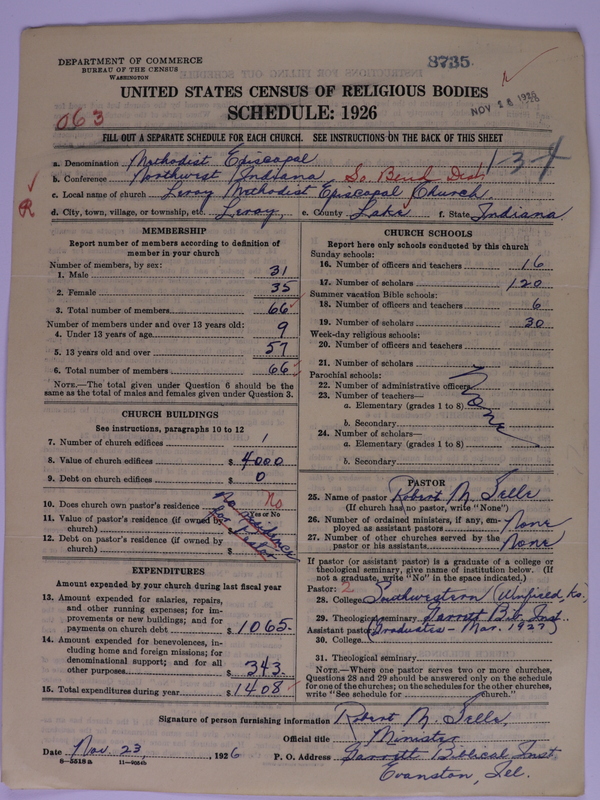 DEPARTMENT OF COMMERCE
BUREAU OF THE CENSUS
WASHINGTON
8735
UNITED STATES CENSUS OF RELIGIOUS BODIES
SCHEDULE: 1926
NOV 26 1926
063
FILL OUT A SEPARATE SCHEDULE FOR EACH CHURCH. SEE INSTRUCTIONS ON THE BACK OF THIS SHEET
a. Denomination Methodist Episcopal
1-34
b. Conference Northwest Indiana So. Bend Dist
c. Local name of church Leroy Methodist Episcopal Church
R
d. City, town, village, or township, etc. Leroy, e. County Lake f. State Indiana
MEMBERSHIP
Report number of members according to definition of
member in your church
Number of members, by sex:
1. Male 31
2. Female 35
3. Total number of members 66
Number of members under and over 13 years old:
4. Under 13 years of age 9
5. 13 years old and over 57
6. Total number of members 66
NOTE.—The total given under Question 6 should be
the same as the total of males and females given under Question 3.
CHURCH BUILDINGS
See instructions, paragraphs 10 to 12
7. Number of church edifices 1
8. Value of church edifices $4000
9. Debt on church edifices $0
10. Does church own pastor's residence No
Yes or No
11. Value of pastor's residence (if owned by
church) $
12. Debt on pastor's residence (if owned by
church) $
No residence
for Pastor
EXPENDITURES
Amount expended by your church during last fiscal year
13. Amount expended for salaries, repairs,
and other running expenses; for im-
provements or new buildings; and for
payments on church debt $1065.
14. Amount expended for benevolences, in-
cluding home and foreign missions; for
denominational support; and for all
other purposes $343.
15. Total expenditures during year $1408
CHURCH SCHOOLS
Report here only schools conducted by this church
Sunday schools:
16. Number of officers and teachers 16
17. Number of scholars 120
Summer vacation Bible schools:
18. Number of officers and teachers 6
19. Number of scholars 30
Week-day religious schools:
20. Number of officers and teachers
21. Number of scholars
Parochial schools:
22. Number of administrative officers
23. Number of teachers—
a. Elementary (grades 1 to 8)
None
b. Secondary
24. Number of scholars—
a. Elementary (grades 1 to 8)
b. Secondary
PASTOR
25. Name of pastor Robert M. Selle
(If church has no pastor, write "None")
26. Number of ordained ministers, if any, em-
ployed as assistant pastors None
27. Number of other churches served by the
pastor or his assistants None
If pastor (or assistant pastor) is a graduate of a college or
theological seminary, give name of institution below. (If
not a graduate, write "No" in the space indicated.)
Pastor: 2
28. College Southwestern (Winfield Ks.)
29. Theological seminary Garrett Bib. Inst.
Assistant pastor: (Graduates - Mar. 1927)
30. College
31. Theological seminary
NOTE.—Where one pastor serves two or more churches,
Questions 28 and 29 should be answered only on the schedule
for one of the churches; on the schedules for the other churches,
write "See schedule for church."
Signature of person furnishing information Robert M. Selle,
Official title Minister
Date Nov. 23, 1926 P. O. Address Garrett Biblical Inst
8—5518a 11—9054b
Evanston, Ill.